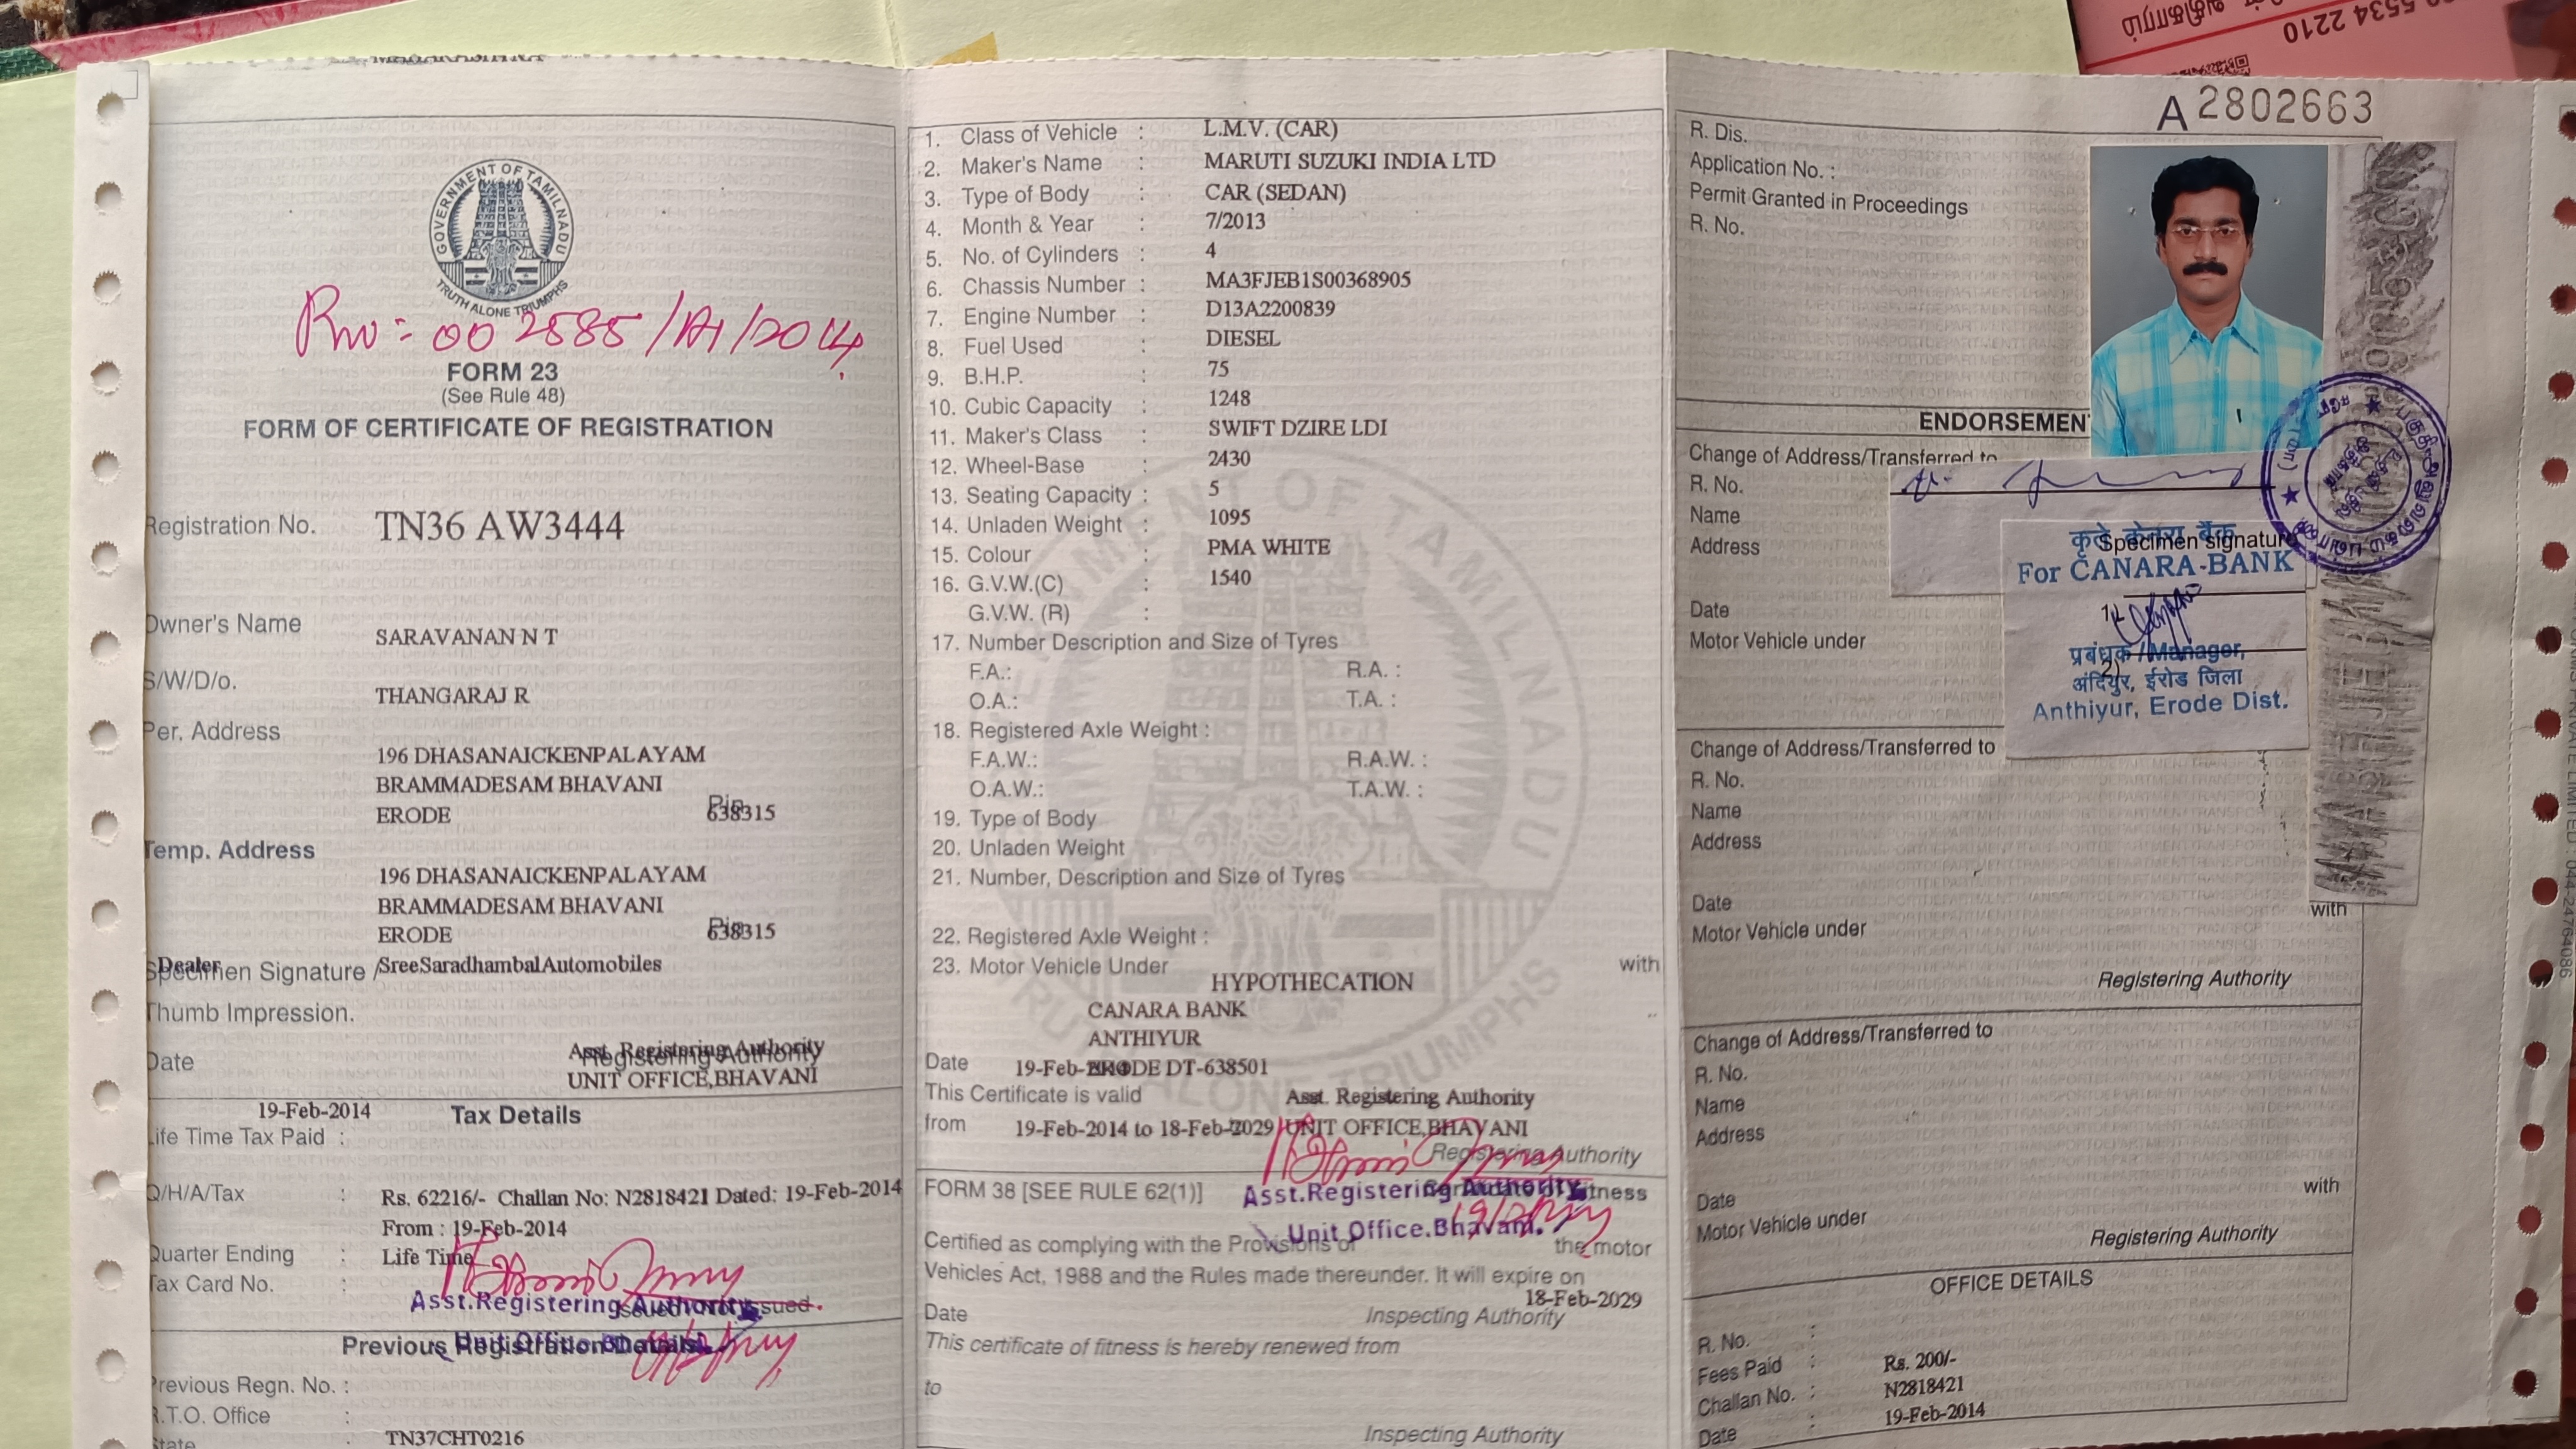 5534 2210
GOVERNMENT OF TAMILNADU
TRUTH ALONE TRIUMPHS
002585/A1/2014
FORM 23
(See Rule 48)
FORM OF CERTIFICATE OF REGISTRATION
Registration No. TN36 AW3444
Owner's Name SARAVANAN N T
S/W/D/o. THANGARAJ R
Per. Address
196 DHASANAICKENPALAYAM
BRAMMADESAM BHAVANI
ERODE Pin 638315
Temp. Address
196 DHASANAICKENPALAYAM
BRAMMADESAM BHAVANI
ERODE Pin 638315
Dealer SreeSaradhambalAutomobiles
Specimen Signature /
Thumb Impression.
Asst. Registering Authority
Registering Authority
Date UNIT OFFICE,BHAVANI
19-Feb-2014 Tax Details
Life Time Tax Paid :
Q/H/A/Tax : Rs. 62216/- Challan No: N2818421 Dated: 19-Feb-2014
From : 19-Feb-2014
Quarter Ending : Life Time
Tax Card No. :
Asst.Registering Authority
Previous Registration Details
Previous Regn. No. :
R.T.O. Office :
State : TN37CHT0216
1. Class of Vehicle : L.M.V. (CAR)
2. Maker's Name : MARUTI SUZUKI INDIA LTD
3. Type of Body : CAR (SEDAN)
4. Month & Year : 7/2013
5. No. of Cylinders : 4
6. Chassis Number : MA3FJEB1S00368905
7. Engine Number : D13A2200839
8. Fuel Used : DIESEL
9. B.H.P. : 75
10. Cubic Capacity : 1248
11. Maker's Class : SWIFT DZIRE LDI
12. Wheel-Base : 2430
13. Seating Capacity : 5
14. Unladen Weight : 1095
15. Colour : PMA WHITE
16. G.V.W.(C) : 1540
G.V.W. (R) :
17. Number Description and Size of Tyres
F.A.: R.A. :
O.A.: T.A. :
18. Registered Axle Weight :
F.A.W.: R.A.W. :
O.A.W.: T.A.W. :
19. Type of Body
20. Unladen Weight
21. Number, Description and Size of Tyres
22. Registered Axle Weight :
23. Motor Vehicle Under with
HYPOTHECATION
CANARA BANK
ANTHIYUR
ERODE DT-638501
Date 19-Feb-2014
This Certificate is valid Asst. Registering Authority
from 19-Feb-2014 to 18-Feb-2029 UNIT OFFICE,BHAVANI
Registering Authority
FORM 38 [SEE RULE 62(1)] Certificate of Fitness
Asst.Registering Authority
Unit Office.Bhavani.
Certified as complying with the Provisions of the motor
Vehicles Act, 1988 and the Rules made thereunder. It will expire on
18-Feb-2029
Date Inspecting Authority
This certificate of fitness is hereby renewed from
to
Inspecting Authority
A 2802663
R. Dis.
Application No. :
Permit Granted in Proceedings
R. No.
ENDORSEMEN
Change of Address/Transferred to
R. No.
Name
Address
Specimen signature
केनरा बैंक
For CANARA BANK
Date
Motor Vehicle under
प्रबंधक / Manager,
अंदियुर, ईरोड जिला
Anthiyur, Erode Dist.
Change of Address/Transferred to
R. No.
Name
Address
Date with
Motor Vehicle under
Registering Authority
Change of Address/Transferred to
R. No.
Name
Address
Date with
Motor Vehicle under
Registering Authority
OFFICE DETAILS
R. No. :
Fees Paid : Rs. 200/-
Challan No. : N2818421
Date : 19-Feb-2014